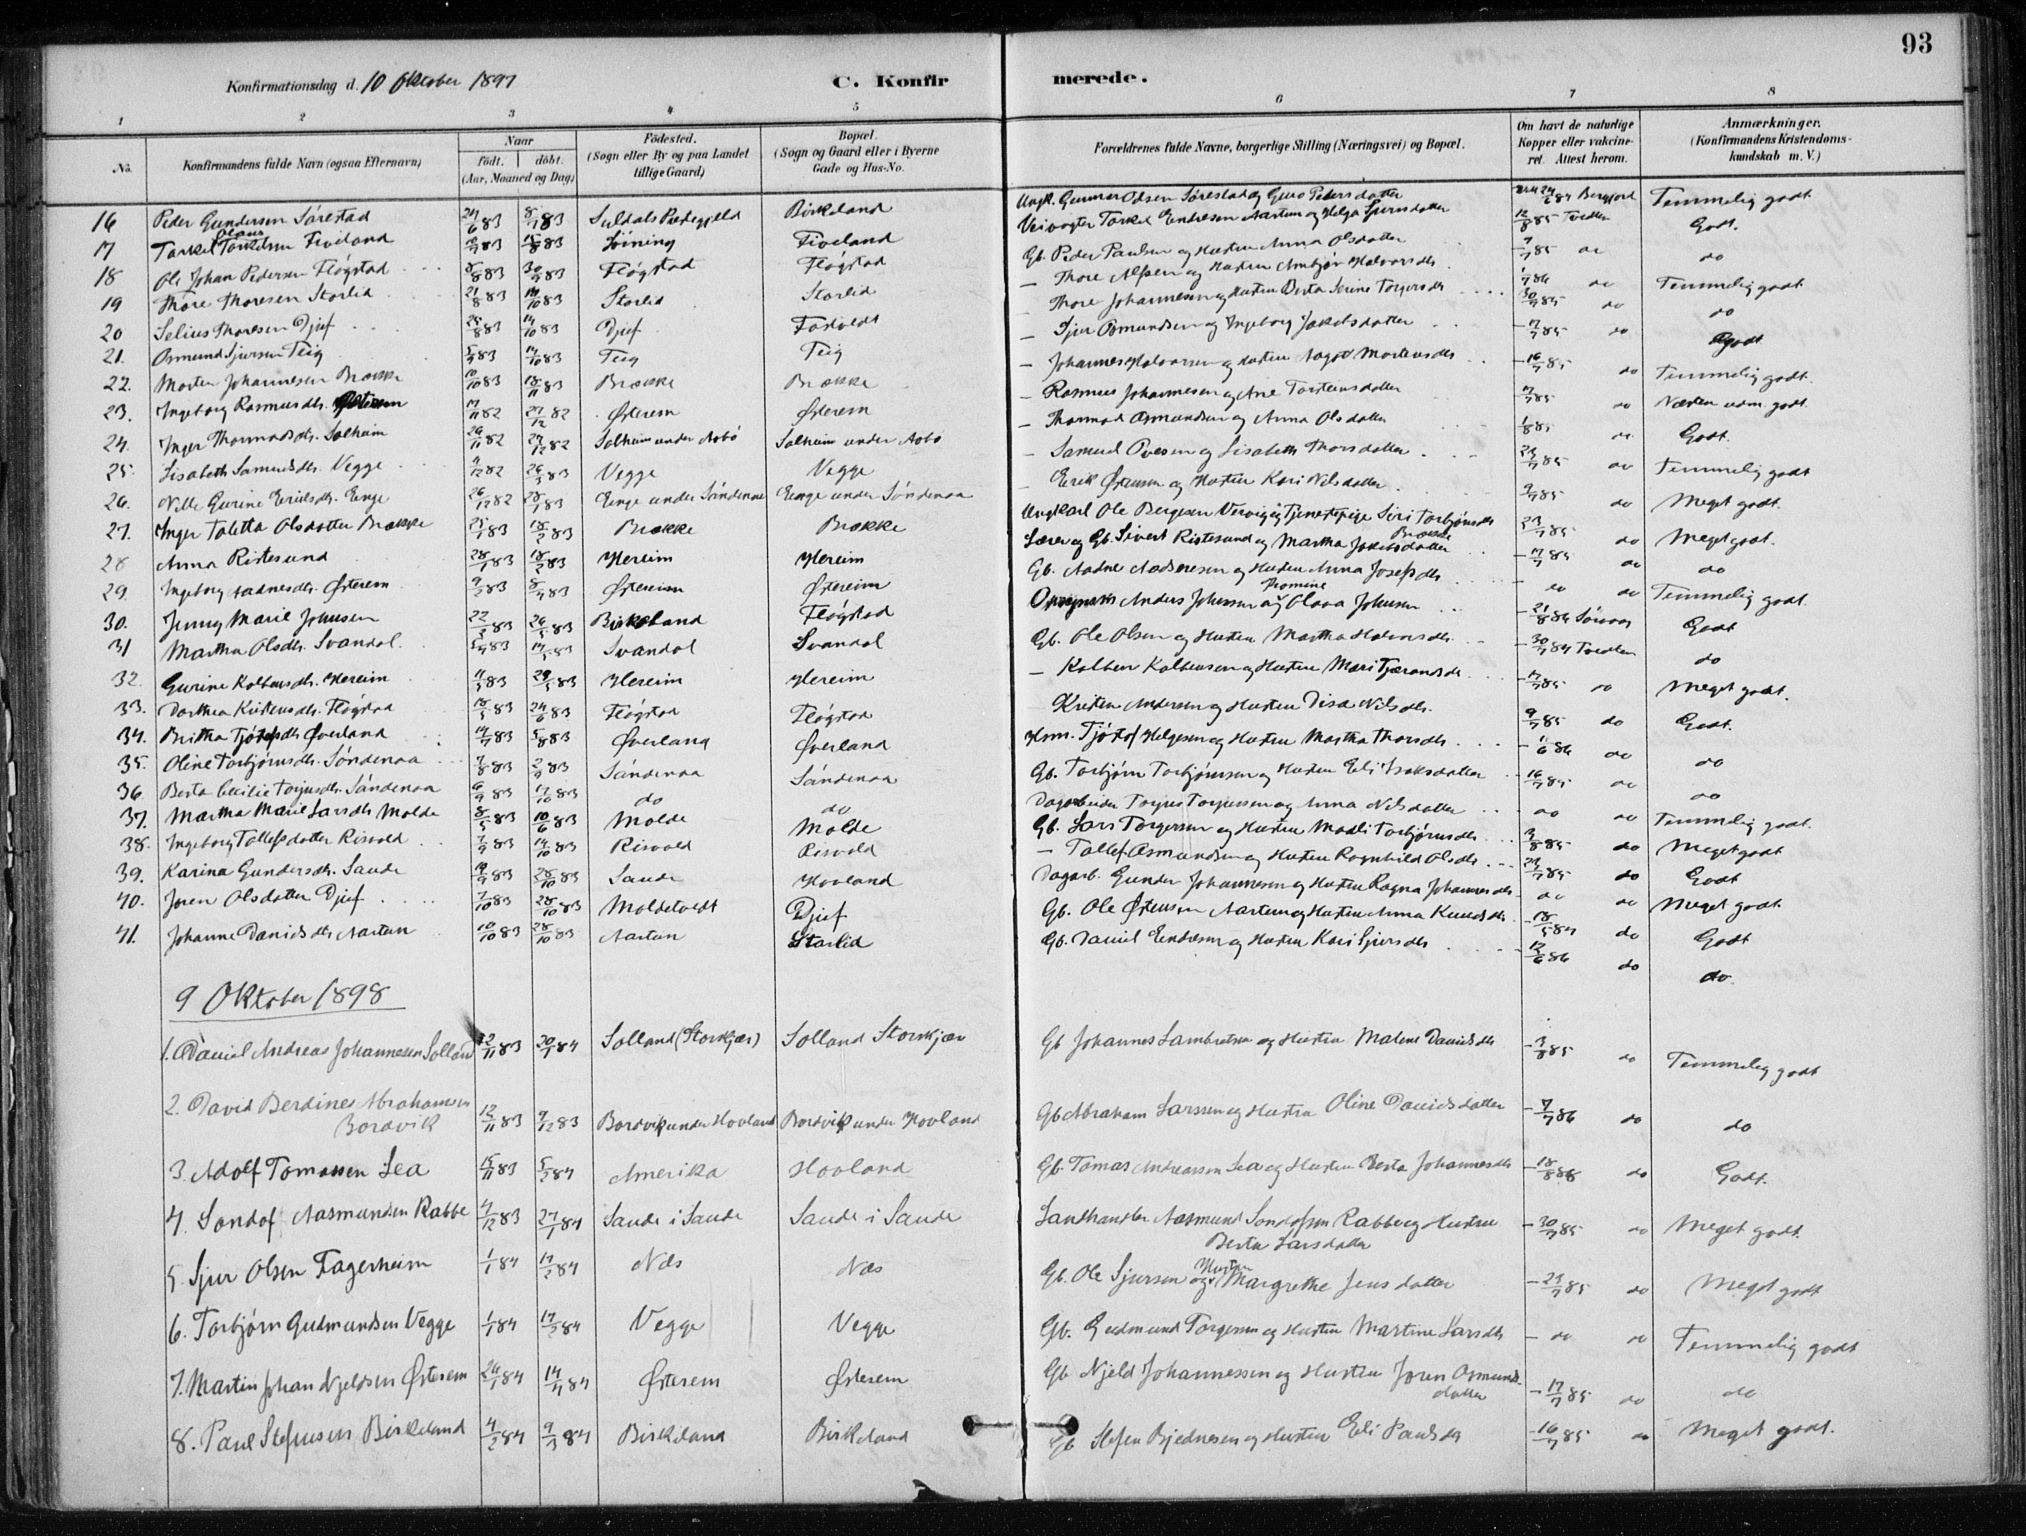 93
Konfirmationsdag d. 10 Oktober 1897 C. Konfirmerede.
1 2 3 4 5 6 7 8
No. Konfirmandens fulde Navn (ogsaa Efternavn) Naar født. døbt. (Aar, Maaned og Dag) Fødested. (Sogn eller By og paa Landet tillige Gaard) Bopæl. (Sogn og Gaard eller i Byerne Gade og Hus-No. Forældrenes fulde Navne, borgerlige Stilling (Næringsvei) og Bopæl. Om havt de naturlige Kopper eller vakcineret. Attest herom. Anmærkninger. (Konfirmandens Kristendomskundskab m. V.)
16 Peder Gundersen Sørestad 83 83 Suldals Prestegjeld Birkeland Ungk. Gunnar Odsen Sørestad og Guro Pedersdatter 84 Temmelig godt
17 Tarkel Olaus Torkelsen Fiveland 83 83 Fiveland Veivogter Torkel Endresen Aartun og Helga 85 Tvedten Godt.
18 Ole Johan Pedersen Fløgstad 8/8 83 30/9 83 Fløgstad Fløgstad Gb. Peder Paulsen og Hustru Anna Olsdatter 85 do do
19 Thore Thoresen Storlid 21/8 83 14/10 83 Storlid Storlid — Thore og Hustru Halvorsdtr. 86 do Temmelig godt
20 Selius Thoresen Djuf 83 14/10 83 Djuf — Thore Johannesen og Hustru Berta Serine Torgersdtr 85 do do
21. Osmund Sjursen Teig 5/9 83 14/10 83 Teig Teig — Sjur Osmundsen og Ingeborg Jakobsdatter 17/7 85 do Godt
22. Morten Johannesen Brække 10/10 83 18/11 83 Brække Brække — Johannes Halvorsen og Hustru Aagot Mortensdtr 16/7 85 do Temmelig godt.
23. Ingeborg Rasmusdtr. Østerem 17/11 82 27/12 82 Østerem Østerem — Rasmus Johannesen og Ane Torsteinsdatter 17/7 85 do Næsten udm. godt.
24. Inger Thormodsdtr. Solheim 26/11 82 27/12 82 Solheim under Aabø Solheim under Aabø — Thormod Osmundsen og Anna Olsdatter 1/8 85 do Godt.
25. Lisabeth Samuelsdtr. Vegge 82 83 Vegge Vegge — Samuel Ovesen og Lisabeth Thorsdatter 85 do Temmelig godt
26. Nille Gurine Eriksdtr. Eenge 26/12 82 28/1 83 Eenge under Søndenaa Eenge under Søndenaa — Erik Østensen og Hustru Kari Nilsdatter 9/7 85 do Meget godt.
27. Inger Taletta Olsdatter Brække 83 18/2 83 Brække Brække Ungkarl Ole Bergesen og Tjenestepige Siri Torbjørnsdtr Brække 85 do Meget godt.
28 Anna Ristesund 28/1 83 18/2 83 Hereim Hereim Lærer og Gb. Sivert Ristesund og Martha Jakobsdatter 17/7 85 do do
29. Ingeborg Aadnesdtr. Østerem 9/2 83 8/4 83 Østereim Østereim Gb. Aadne Aadnesen og Hustru Anna Josefsdtr. do do Temmelig godt
30. Jenny Marie Johnsen 22/2 83 83 Birkeland Fløgstad Anders Johnsen og Olava Johnsen 21/8 86 Godt
31 Martha Olsdtr. Svandal. 83 83 Svandal Svandal Gb. Ole Olsen og Hustru Martha Halvorsdtr. 30/7 84 Tvedten do
32. Gurine Kolbensdtr. Hereim 83 83 Hereim Hereim — Kolben Kolbensen og Hustru Mari Tjerandsdtr 17/7 85 do Meget godt.
33. Dorthea Kristensdtr. Fløgstad 18/5 83 24/6 83 Fløgstad Fløgstad Kristen Andersen og Hustru Disa Nilsdtr. 9/7 85 do Godt.
34. Britha Tjøstofsdtr Øverland 14/7 83 5/8 83 Øverland Øverland Hsm. Tjøstof Helgesen og Hustru Martha Thorsdtr. 86 do do
35. Oline Torbjørnsdtr. Søndenaa 7/8 83 2/9 83 Søndenaa Søndenaa Gb. Torbjørn Torbjørnsen og Hustru Eli Isaksdatter 16/7 85 do do
36 Berta Cecilie Torjusdtr. Søndenaa 6/9 83 17/10 83 do do Dagarbeider Torjus Torjussen og Anna Nilsdatter do do Temmelig godt.
37. Martha Marie Larsdtr Molde 8/5 83 10/6 83 Molde Molde Gb. Lars Torgersen og Hustru Madli Torbjørnsdtr. 3/8 85 do Meget godt
38. Ingeborg Tollefsdatter Risvold 7/9 83 14/10 83 Risvold Risvold — Tollef Osmundsen og Hustru Ragnhild Olsdtr. 85 do Godt
39. Karina Gundersdtr. Saude 83 28/10 83 Saude Hovland Dagarb. Gunder Johannesen og Hustru Ragna Johannesdtr do do Meget godt.
40. Joren Olsdatter Djuf 7/10 83 28/10 83 Moldetvedt Djuf Gb. Ole Østensen Aartun og Hustru Anna Knudsdtr 18/5 84 do Godt
41. Johanne Danielsdtr Aartun 10/10 83 28/10 83 Aartun Storlid Gb. Daniel Endresen og Hustru Kari Sjursdtr 12/6 86 do do.
9 Oktober 1898
1. Daniel Andreas Johannesen Solland 22/11 83 20/1 84 Solland (Storkjær) Solland Storkjær Gb Johannes Lambretsen og Hustru Malene Danielsdtr 3/8 85 do Temmelig godt
2. David Berdines Abrahamsen Bordvik 12/11 83 9/12 83 Bordvik under Hovland Bordvik under Hovland Gb Abraham Larssen og Hustru Oline Davidsdatter 7/7 86 do do
3. Adolf Tomassen Lea 15/11 83 5/2 84 Amerika Hovland Gb. Tomas Andreassen Lea og Hustru Berta Johannesdtr 18/8 86 do Godt.
4. Sondof Aasmundsen Rabbe 4/12 83 27/1 84 Saude i Saude Saude i Saude Landhandler Aasmund Sondofsen Rabbe og Hustru Berta Larsdatter 30/7 85 do Meget godt.
5. Sjur Olsen Fagerheim 1/1 84 17/2 84 Næs Næs Gb. Ole Sjursen og Hustru Margrethe Jensdatter 85 do Meget godt
6. Torbjørn Gudmundsen Vegge 1/1 84 17/2 84 Vegge Vegge Gb. Gudmund Torgersen og Hustru Martine Larsdtr — do do Temmelig godt
7. Martin Johan Njeldsen Østerem 26/1 84 14/4 84 Østerem Østerem Gb Njeld Johannessen og Hustru Joren Osmundsdatter 17/7 85 do do
8. Paul Stefensen Birkeland 4/2 84 9/3 84 Birkeland Birkeland Gb Stefen Bjednesen og Hustru Eli Paulsdtr 16/7 85 do Meget godt.